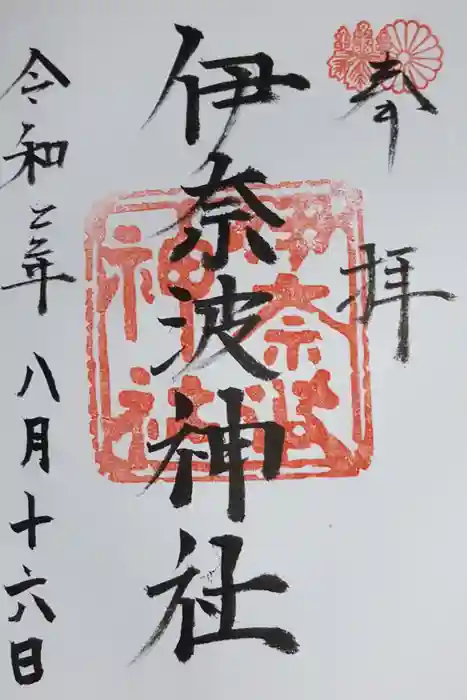 奉拝
伊奈波神社
伊奈波神社
令和二年八月十六日